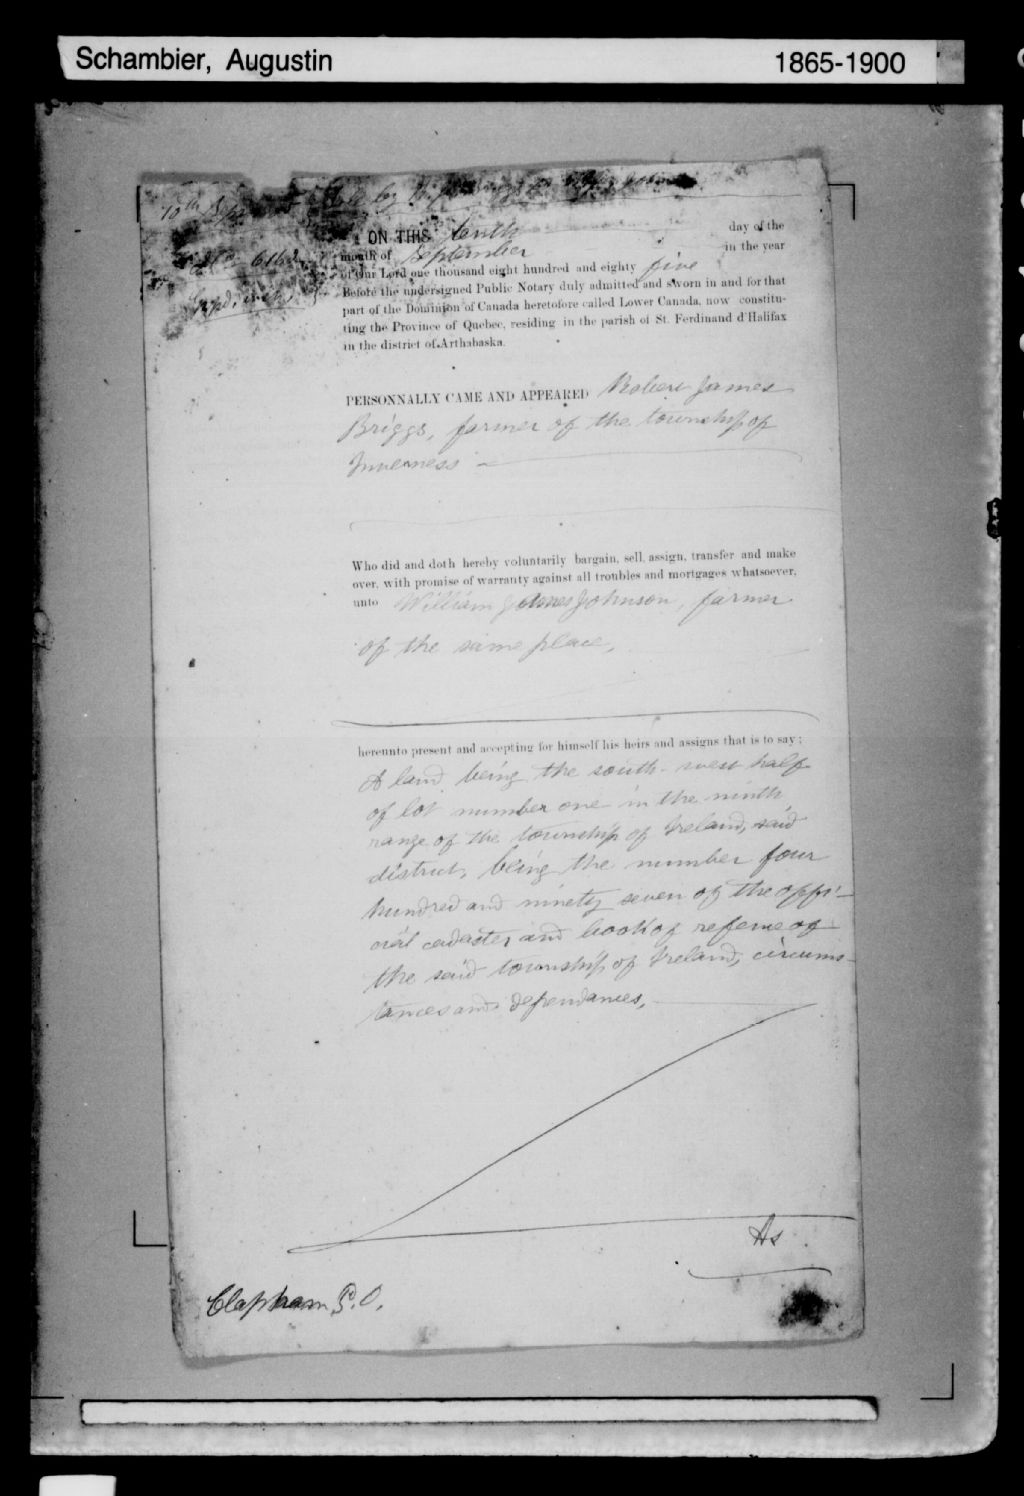 Schambier, Augustin 1865-1900
10th
Sale by
ON THIS tenth day of the
month of September in the year
of Our Lord one thousand eight hundred and eighty five
Before the undersigned Public Notary duly admitted and sworn in and for that
part of the Dominion of Canada heretofore called Lower Canada, now constitu-
ting the Province of Quebec, residing in the parish of St. Ferdinand d'Halifax
in the district of Arthabaska.
PERSONNALLY CAME AND APPEARED Robert James
Briggs, farmer of the township of
Inverness
Who did and doth hereby voluntarily bargain, sell, assign, transfer and make
over, with promise of warranty against all troubles and mortgages whatsoever,
unto William James Johnson, farmer
of the same place,
hereunto present and accepting for himself his heirs and assigns that is to say:
A land being the south-west half
of lot number one in the ninth
range of the township of Ireland, said
district, being the number four
hundred and ninety seven of the offi-
cial cadaster and book of referne of
the said township of Ireland, circums-
tances and dependances,
As
Clapham P.O.